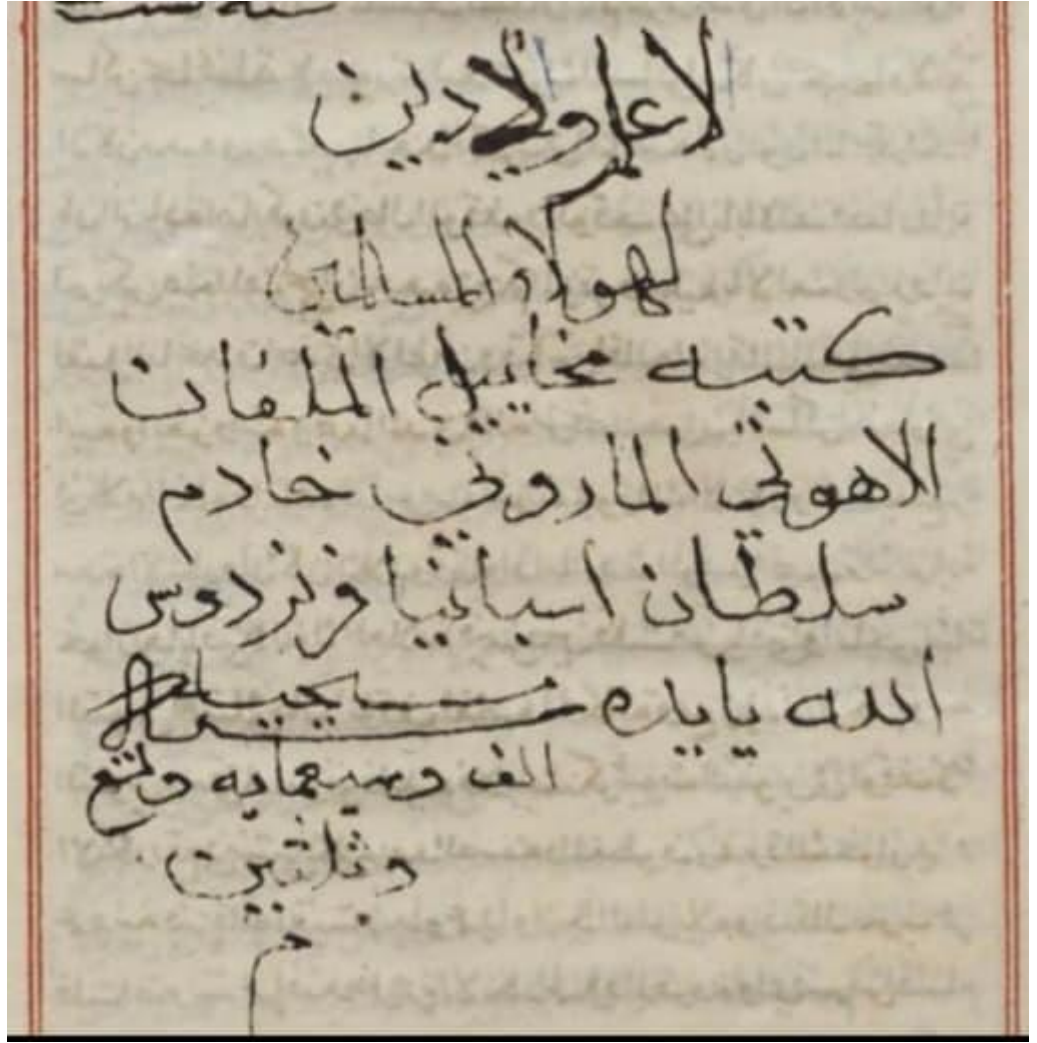 لا علم ولا دين
لهولاء المسلمين
كتبه مخاييل الملفان
الاهوتي الماروني خادم
سلطان اسبانيا فرنزدوس
الله يايده سنة مسيحية
الف وسبعمايه وتسع
وثلثين
م